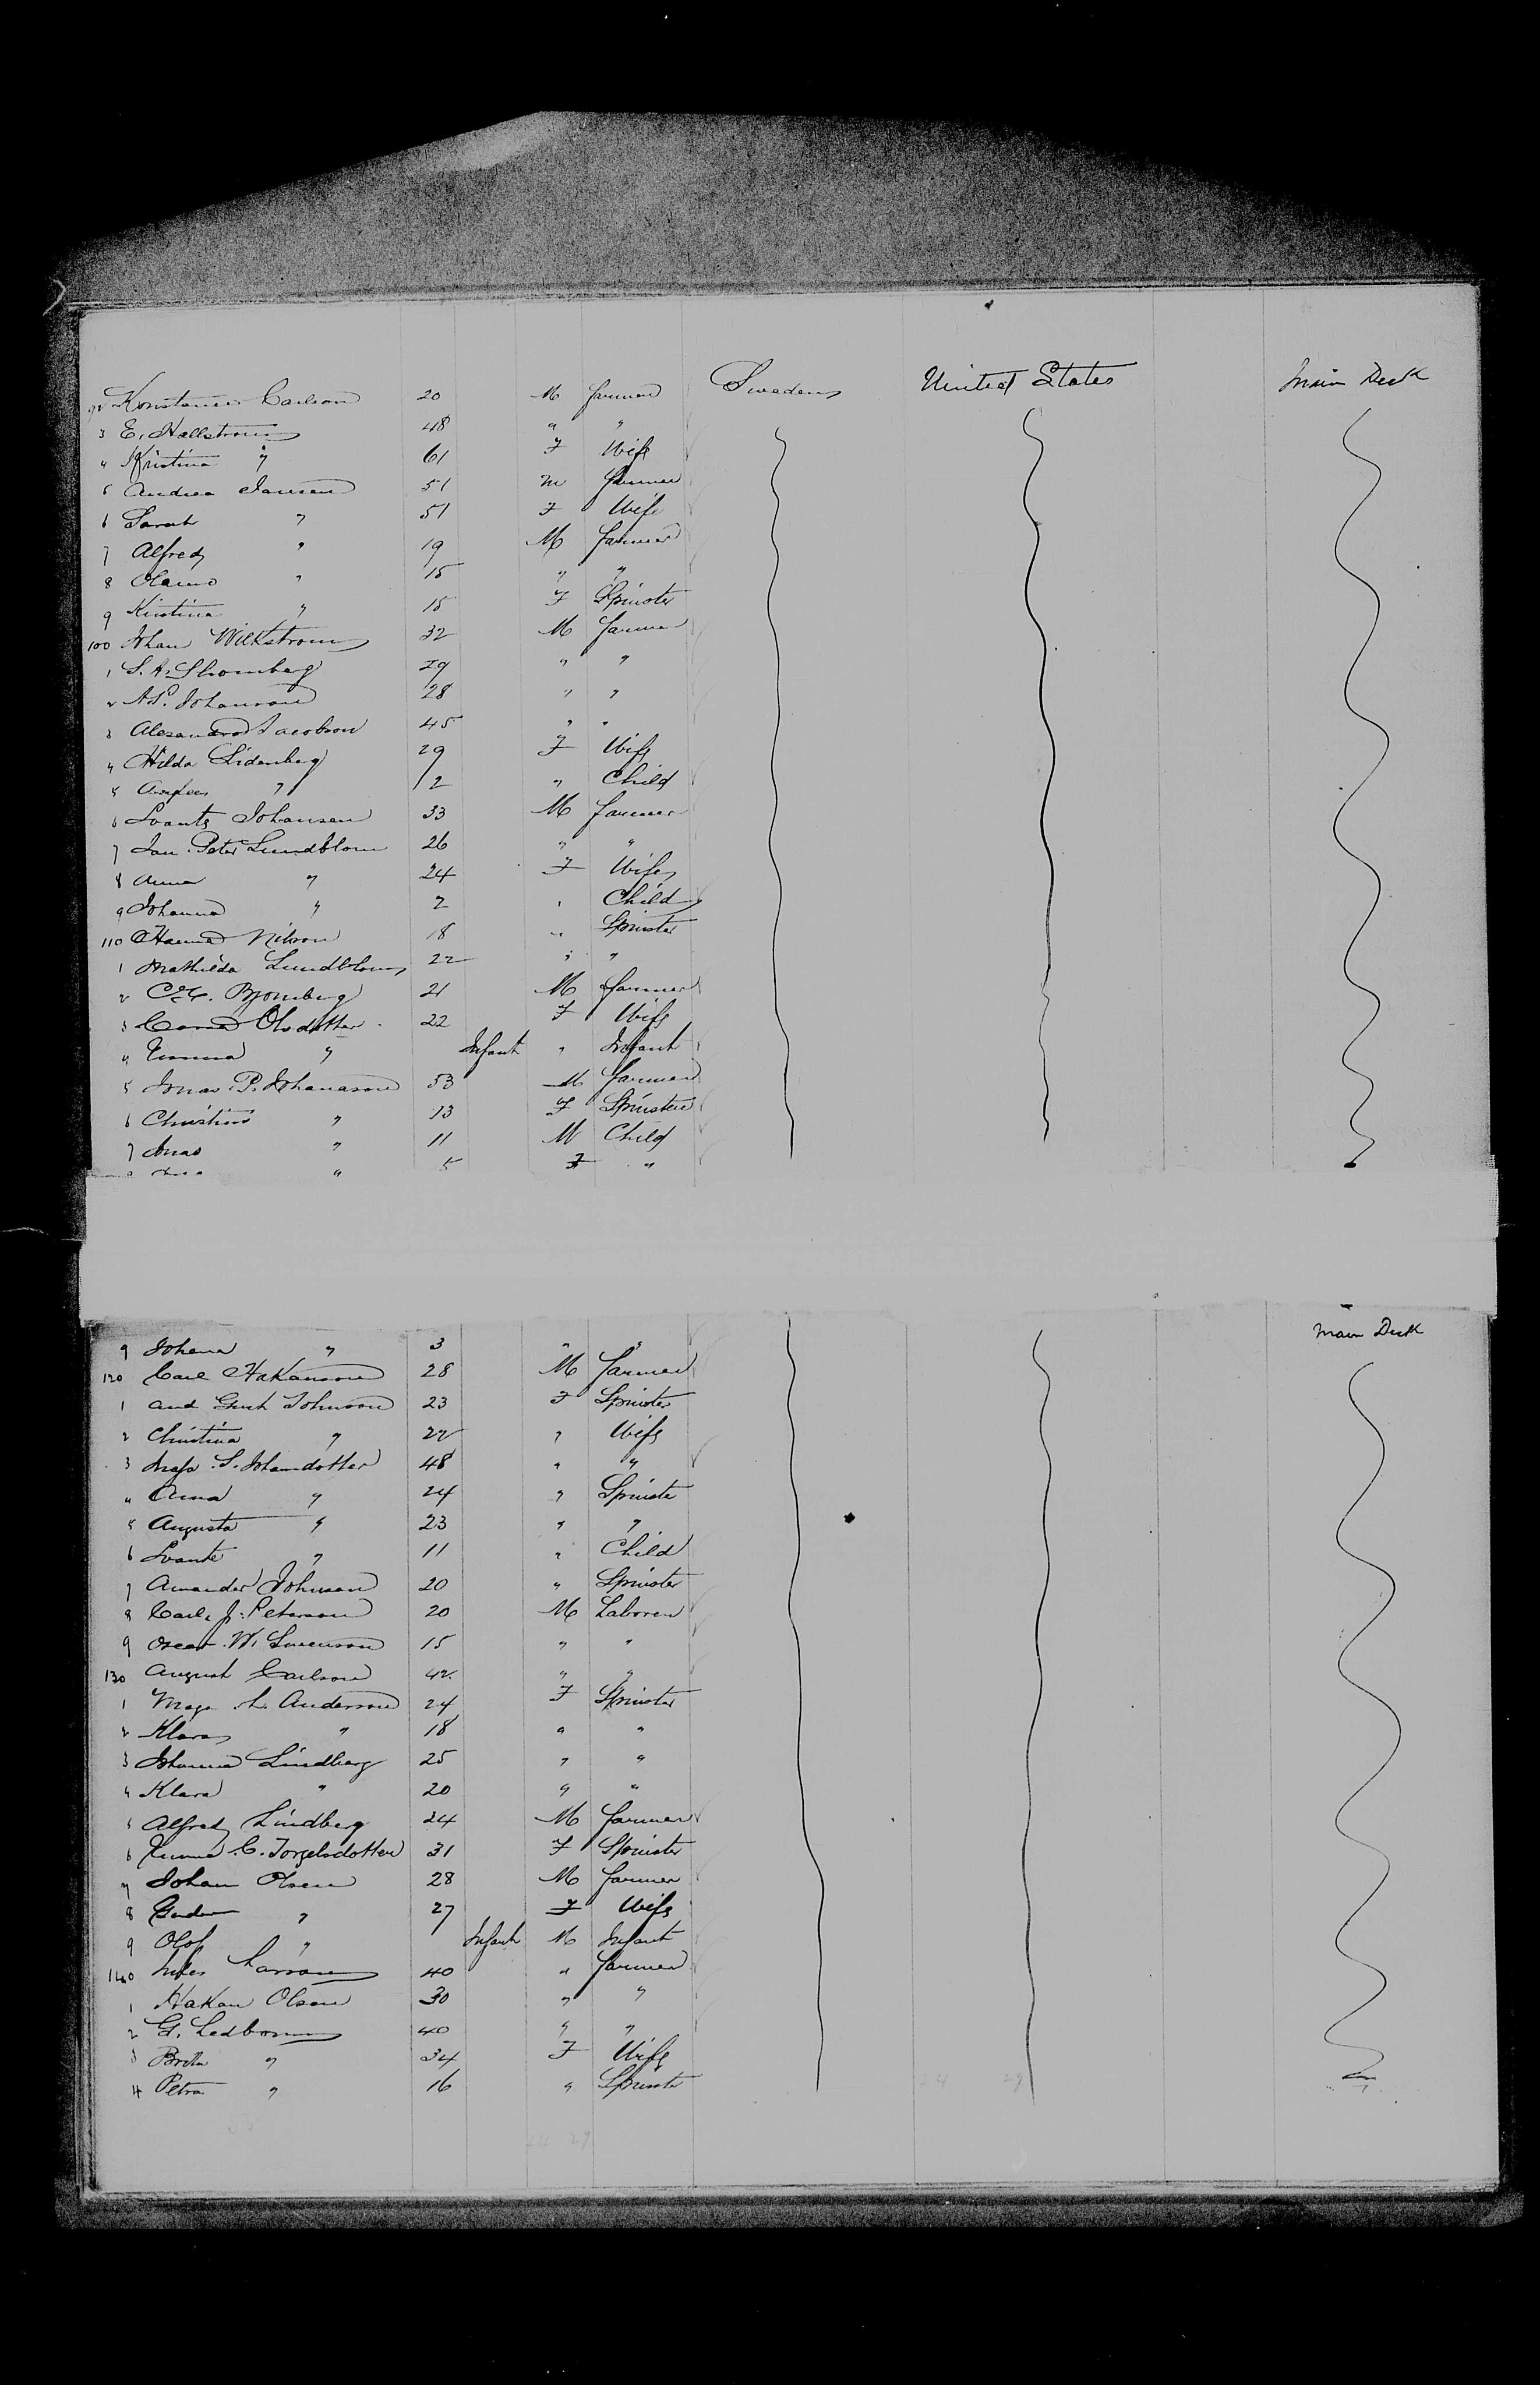 92 Konstance Carlson 20 M farmer Sweden United States Main Deck
3 E. Hallstrom 48 " "
4 Kristina " 61 F Wife
5 Andrea Jansen 51 M farmer
6 Sarah " 51 F Wife
7 Alfred " 19 M farmer
8 " 15 " "
9 Kristina " 15 F Spinster
100 Johan Wilkstrom 32 M farmer
1 S. A. 29 " "
2 A. P. Johanson 28 " "
3 Alexander Jacobson 45 " "
4 Hilda Lidenberg 29 F Wife
5 " 2 " Child
6 Svante Johansen 33 M farmer
7 Jan Peter Lundblom 26 " "
8 Anna " 24 F Wife
9 Johanna " 2 " Child
110 Hanna Nilson 18 " Spinster
1 Mathilda Lundblom 22 " "
2 Bjornberg 21 M farmer
3 Olsdotter 22 F Wife
4 Emma " Infant " Infant
5 Jonas P. Johanason 53 M farmer
6 Christina " 13 F Spinster
7 Jonas " 11 M Child
" 5 F "
9 Johana " 3 " " Main Deck
120 Carl Hakanson 28 M farmer
1 And Johnson 23 F Spinster
2 Christina " 22 " Wife
3 S. Johansdotter 48 " "
4 Anna " 24 " Spinster
5 Augusta " 23 " "
6 Svante " 11 " Child
7 Amanda Johnson 20 " Spinster
8 Carl J. Peterson 20 M Laborer
9 Oscar W. Swenson 15 " "
130 August Carlson 42 " "
1 Anderson 24 F Spinster
2 Klara " 18 " "
3 Johanna Lindberg 25 " "
4 Klara " 20 " "
5 Alfred Lindberg 24 M farmer
6 Emma C. 31 F Spinster
7 Johan Olsen 28 M farmer
8 " 27 F Wife
9 Olof " Infant M Infant
140 Larson 40 " farmer
1 Hakan Olsen 30 " "
2 G. Ledbom 40 " "
3 Brita " 34 F Wife
4 Petra " 16 " Spinster